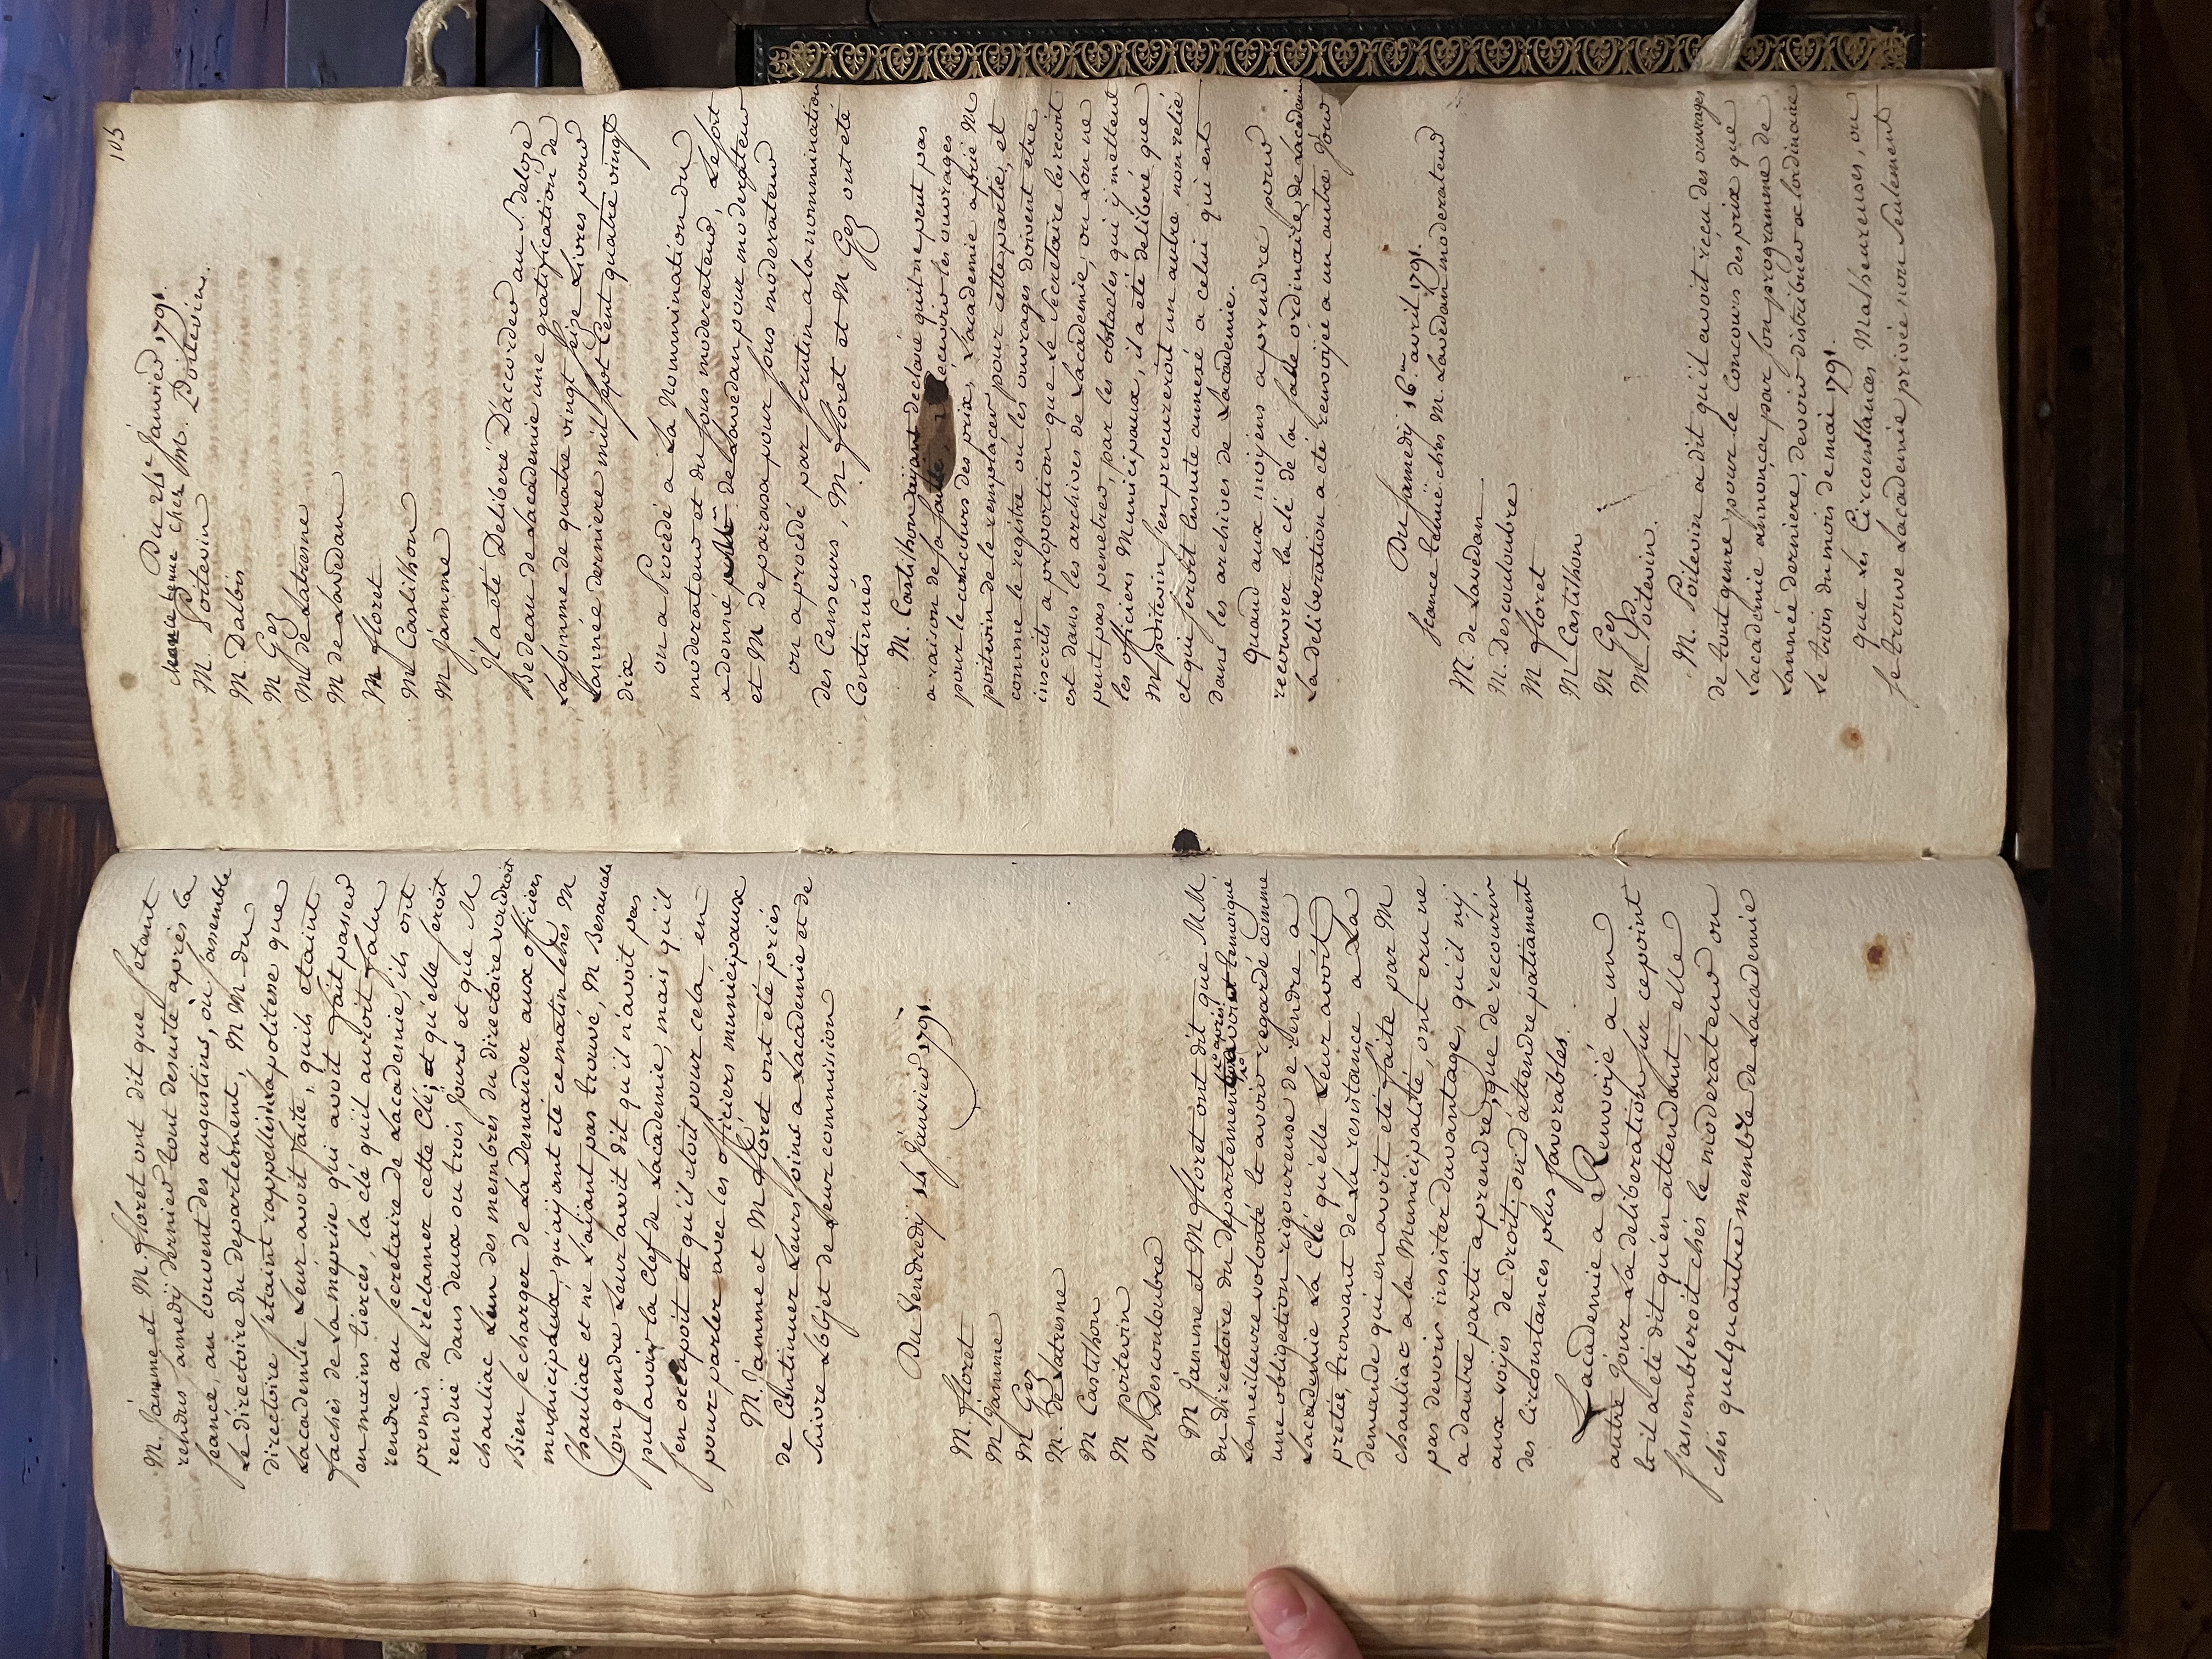 M. Jamme et M. floret ont dit que s'etant
rendus samedy dernier tout desuite après la
seance, au couvent des augustins, où s'assemble
Le directoire du departement, M M du
directoire s'etaint rappellés la politesse que
Lacademie Leur avoit faite, quils etaint
fachés de La meprise qui avoit fait passer
en mains tierces, la clé qu'il auroit falu
rendre au secretaire de Lacademie, ils ont
promis de réclamer cette Clé, et qu'elle seroit
renduë dans deux ou trois jours et que M
chauliac Lun des membres du directoire voudroit
Bien se charger de La Demander aux officiers
municipaux, qu'aÿant eté ce matin chés M
Chauliac et ne L'aÿant pas trouvé, M Besaucele
son gendre Leur avoit dit qu'il n'avoit pas
pu avoir la Clef de Lacademie, mais qu'il
s'en occupoit et qu'il etoit pour cela, en
pour-parler avec les officiers municipaux
M. Jamme et M floret ont eté priés
de Continuer Leurs soins a Lacademie et de
suivre Lobjet de Leur commission
Du Vendredy 14 Janvier 1791
M. floret
M Jamme
M Gez
M. de Latresne
M Castilhon
M poitevin
M Descouloubre
M Jamme et M floret ont dit que M M
du directoire du departement après avoir temoigné
La meilleure volonté et avoir regardé comme
une obligation rigoureuse de rendre a
Lacademie La Clé qu'elle Leur avoit
pretée, trouvant de La resistance a La
demande qui en avoit eté faite par M
chauliac a la Municipalité, ont cru ne
pas devoir insister davantage, qu'il n'y
a dautre parti a prendre, que de recourir
aux voÿes de droit, ou d'attendre patiament
des Circonstances plus favorables.
Lacademie a Renvoÿé a un
autre Jour La deliberation sur ce point
et il a eté dit qu'en attendant, elle
s'assembleroit chés le moderateur ou
chés quelqu'autre membre de Lacademie
105
Du 21e Janvier 1791.
seance tenuë chés M. Poitevin.
M. Poitevin
M. Dalbis
M Gez
M de Latresne
M de Lavedan
M floret
M Castilhon
M Jamme
Il a eté Deliberé D'accorder au Sr Deloze
Bedeau de Lacademie une gratification de
La somme de quatre vingt seize Livres pour
Lannée derniere mil sept Cent quatre vingt
dix
on a Procedé a La Nommination du
moderateur et du sous moderateur, Le sort
a donné M de Lavedan pour moderateur
et M deparasa pour sous moderateur
on a procedé par scrutin a la nommination
des Censeurs, M. floret et M Gez ont eté
Continués
M. Castilhon aÿant declaré quil ne peut pas
a raison de sa santé recevoir les ouvrages
pour le concours des prix, Lacademie a prié M
poitevin de le remplacer pour cette partie, et
comme le registre ou les ouvrages doivent etre
inscrits a proportion que Le secretaire les recoit
est dans les archives de Lacademie, ou Lon ne
peut pas penetrer, par les obstacles qui y mettent
les officiers Municipaux, il a eté deliberé que
M poitevin s'en procureroit un autre non relié
et qui seroit ensuite annexé a celui qui est
dans les archives de Lacademie.
Quand aux moÿens a prendre pour
recouvrer la clé de la salle ordinaire de Lacademie
La deliberation a eté renvoÿée a un autre Jour
Du samedy 16me avril 1791.
seance tenuë chés M. Lavedan moderateur
M. de Lavedan
M. Descouloubre
M floret
M Castilhon
M Gez
M Poitevin.
M. Poitevin a dit qu'il avoit recu des ouvrages
de tout genre pour le Concours des prix que
Lacademie annonça par son programme de
Lannée derniere, devoir distribuer a Lordinaire
Le trois du mois de mai 1791.
que Les Circonstances Malheureuses, ou
se trouve Lacademie privée non seulement